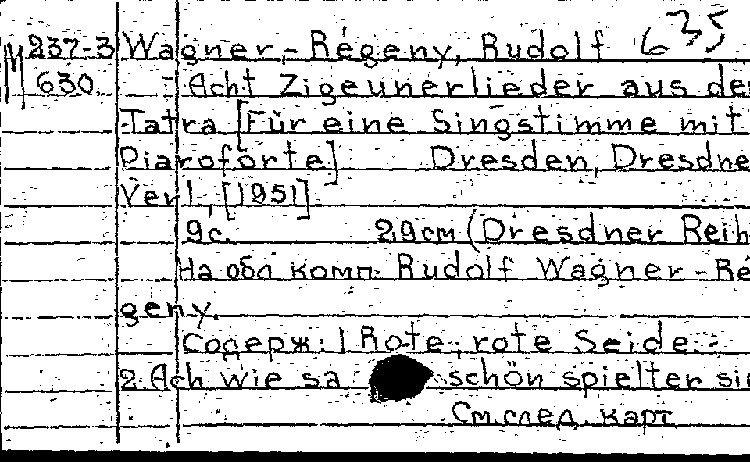 M 237-3 Wagner-Régeny, Rudolf 635
630 Acht Zigeunerlieder aus de
Tatra [Für eine Singstimme mit
Pianoforte] Dresden, Dresdne
Verl., [1951]
9с. 29см (Dresdner Reih
На обл комп. Rudolf Wagner-Ré
geny.
Содерж: 1 Rote, rote Seide.-
2. Ach wie sa schön spielter si
См. след. карт